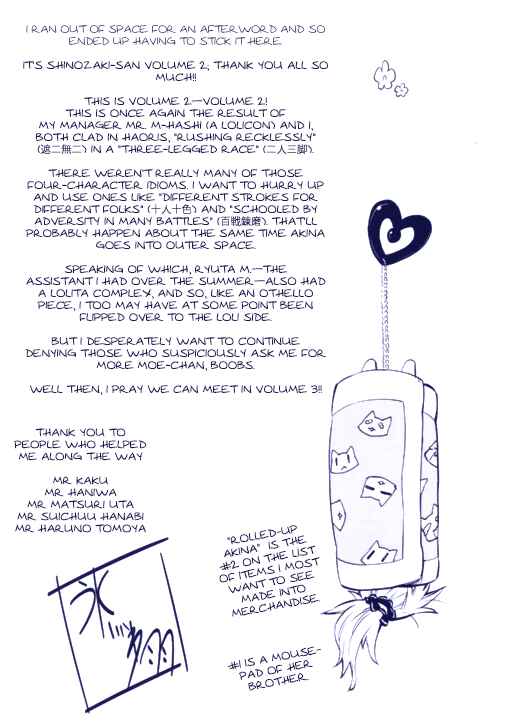 I RAN OUT OF SPACE FOR AN AFTERWORD AND SO
ENDED UP HAVING TO STICK IT HERE.
IT'S SHINOZAKI-SAN VOLUME 2; THANK YOU ALL SO
MUCH!!
THIS IS VOLUME 2—VOLUME 2!
THIS IS ONCE AGAIN THE RESULT OF
MY MANAGER MR. M-HASHI (A LOLICON) AND I,
BOTH CLAD IN HAORIS, "RUSHING RECKLESSLY"
(遮二無二) IN A "THREE-LEGGED RACE" (二人三脚).
THERE WEREN'T REALLY MANY OF THOSE
FOUR-CHARACTER IDIOMS. I WANT TO HURRY UP
AND USE ONES LIKE "DIFFERENT STROKES FOR
DIFFERENT FOLKS" (十人十色) AND "SCHOOLED BY
ADVERSITY IN MANY BATTLES" (百戦錬磨). THAT'LL
PROBABLY HAPPEN ABOUT THE SAME TIME AKINA
GOES INTO OUTER SPACE.
SPEAKING OF WHICH, RYUTA M.—THE
ASSISTANT I HAD OVER THE SUMMER—ALSO HAD
A LOLITA COMPLEX, AND SO, LIKE AN OTHELLO
PIECE, I TOO MAY HAVE AT SOME POINT BEEN
FLIPPED OVER TO THE LOLI SIDE.
BUT I DESPERATELY WANT TO CONTINUE
DENYING THOSE WHO SUSPICIOUSLY ASK ME FOR
MORE MOE-CHAN, BOOBS.
WELL THEN, I PRAY WE CAN MEET IN VOLUME 3!!
THANK YOU TO
PEOPLE WHO HELPED
ME ALONG THE WAY
MR KAKU
MR HANIWA
MR MATSURI UTA
MR SUICHUU HANABI
MR HARUNO TOMOYA
"ROLLED-UP
AKINA" IS THE
#2 ON THE LIST
OF ITEMS I MOST
WANT TO SEE
MADE INTO
MERCHANDISE.
#1 IS A MOUSE-
PAD OF HER
BROTHER